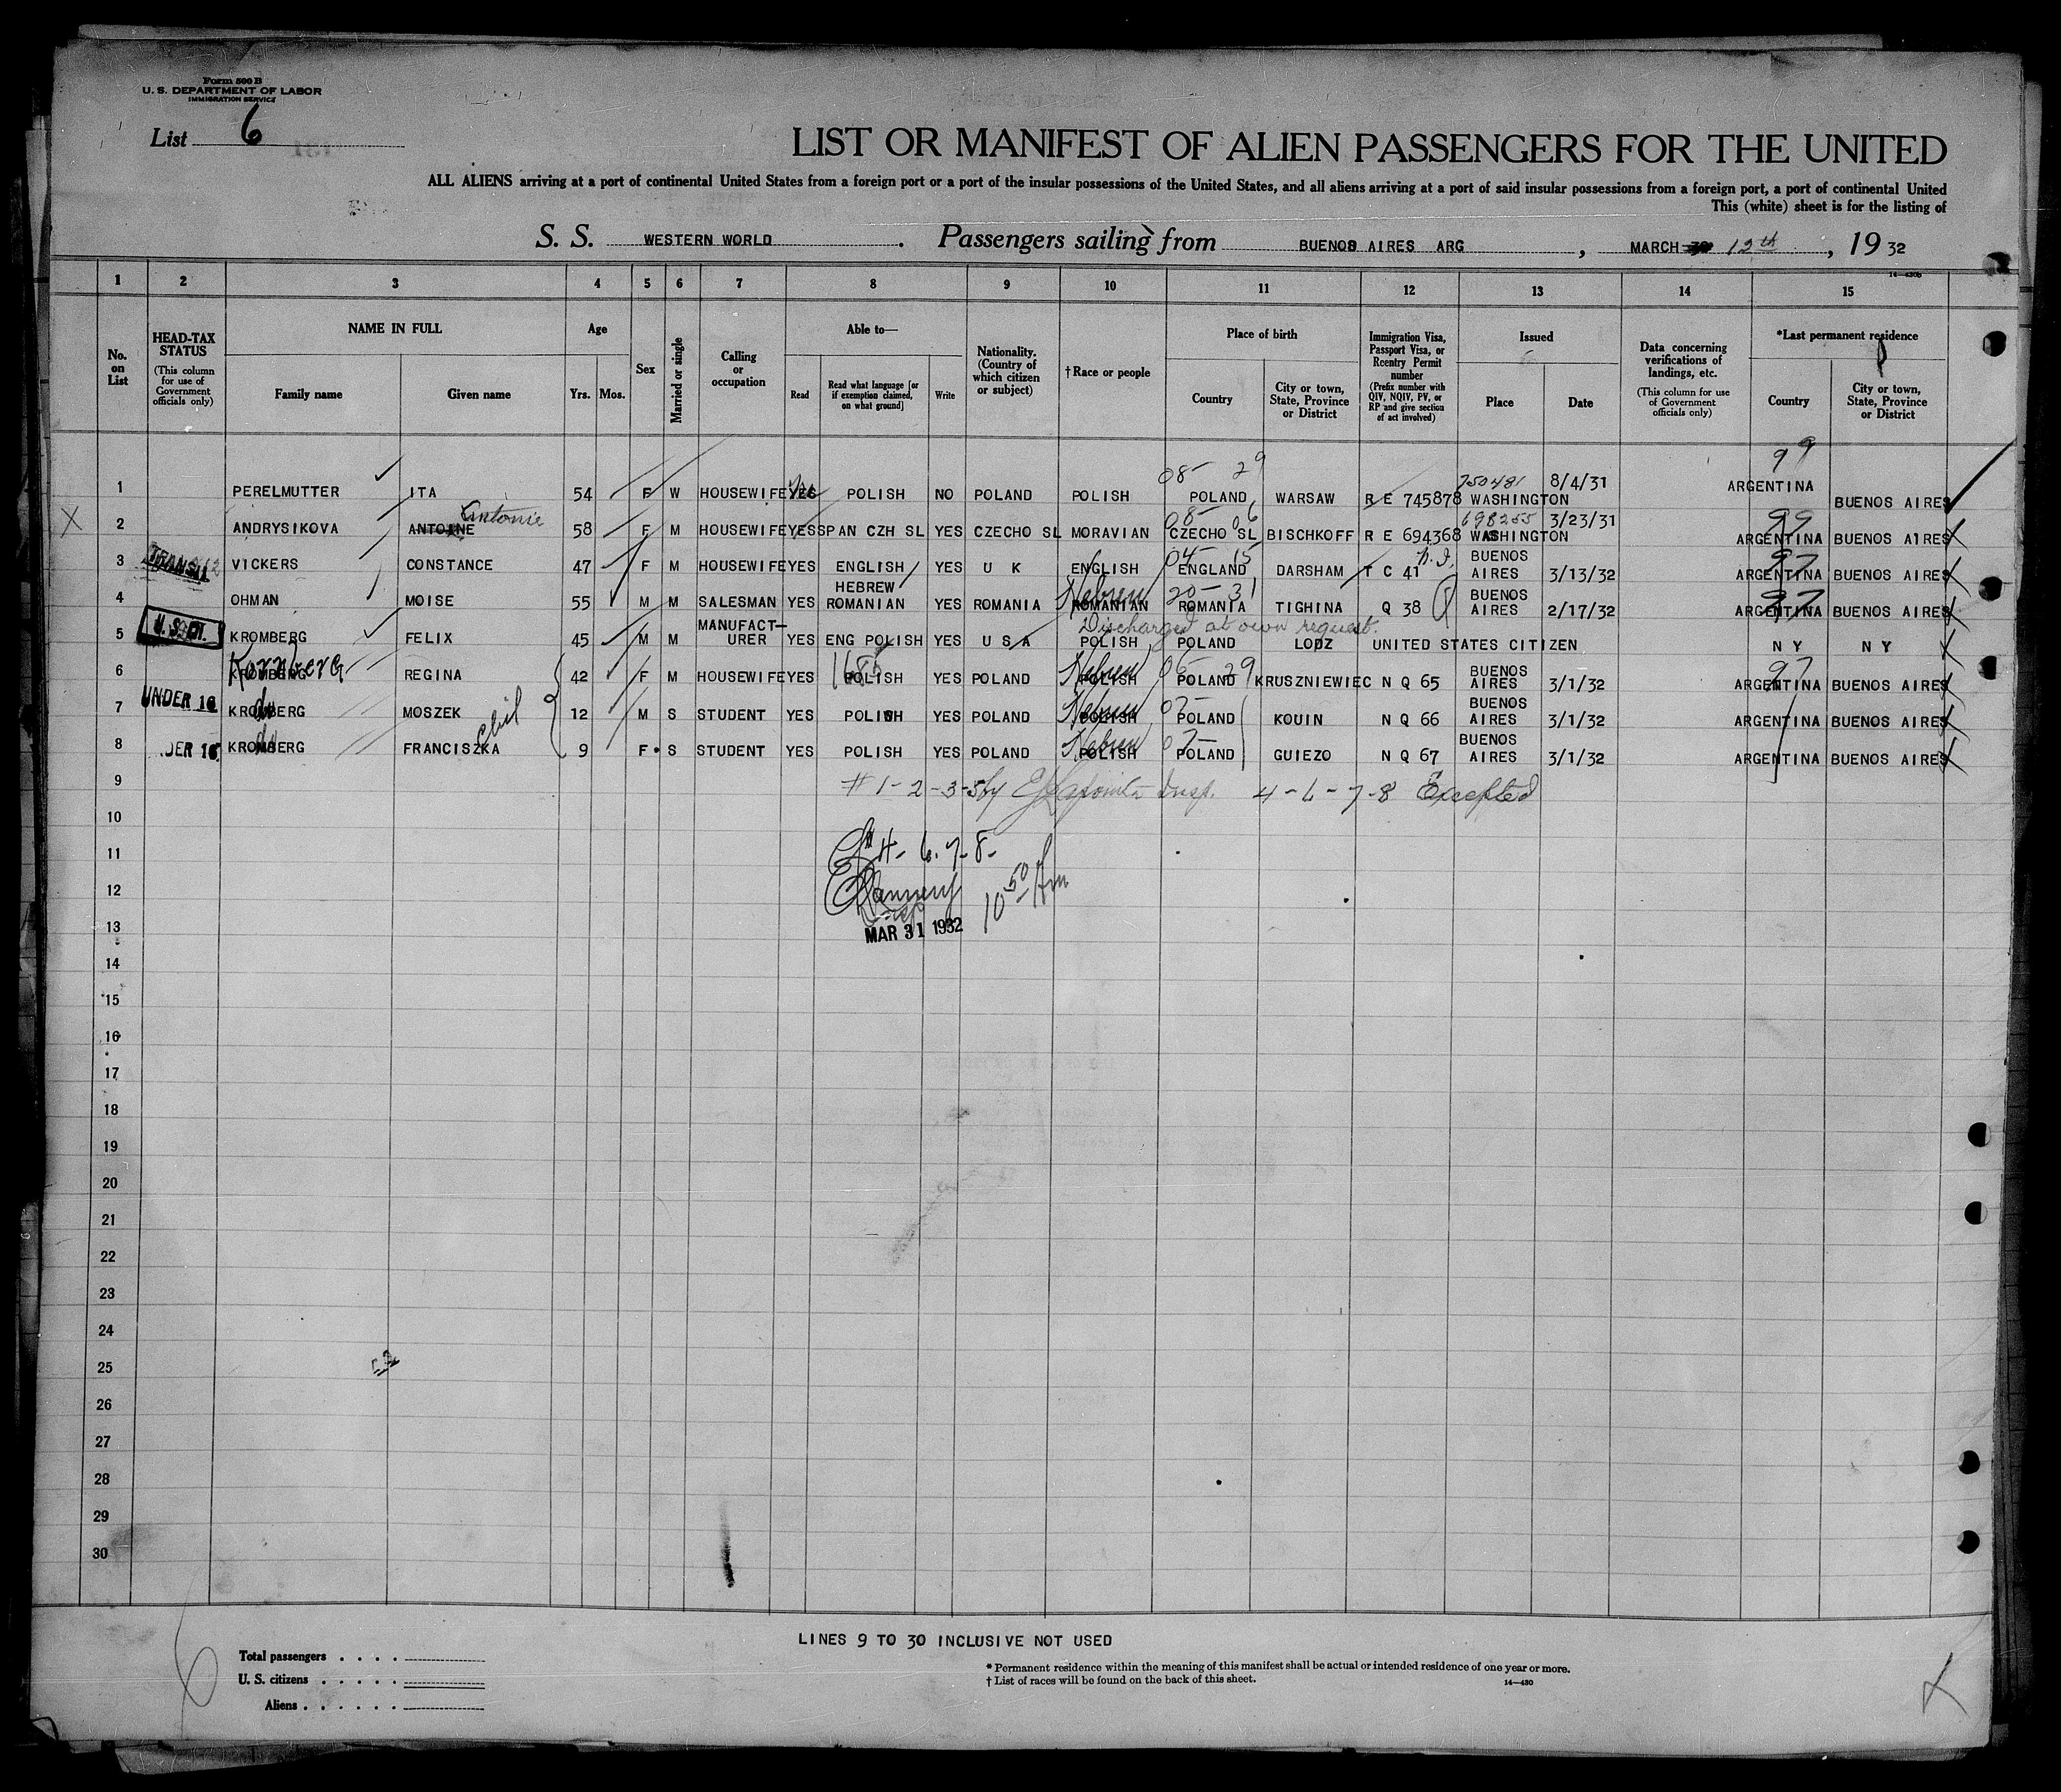 Form 500 B
U. S. DEPARTMENT OF LABOR
IMMIGRATION SERVICE
List 6
LIST OR MANIFEST OF ALIEN PASSENGERS FOR THE UNITED
ALL ALIENS arriving at a port of continental United States from a foreign port or a port of the insular possessions of the United States, and all aliens arriving at a port of said insular possessions from a foreign port, a port of continental United
This (white) sheet is for the listing of
S. S. WESTERN WORLD. Passengers sailing from BUENOS AIRES ARG, MARCH 12th, 19 32
14—430b
1 2 3 4 5 6 7 8 9 10 11 12 13 14 15
No. on List
HEAD-TAX STATUS (This column for use of Government officials only)
NAME IN FULL Family name Given name
Age Yrs. Mos.
Sex
Married or single
Calling or occupation
Able to— Read Read what language [or if exemption claimed, on what ground] Write
Nationality. (Country of which citizen or subject)
†Race or people
Place of birth Country City or town, State, Province or District
Immigration Visa, Passport Visa, or Reentry Permit number (Prefix number with QIV, NQIV, PV, or RP and give section of act involved)
Issued Place Date
Data concerning verifications of landings, etc. (This column for use of Government officials only)
*Last permanent residence Country City or town, State, Province or District
08- 29 750481 99
1 PERELMUTTER ITA 54 F W HOUSEWIFE YES POLISH NO POLAND POLISH POLAND WARSAW R E 745878 WASHINGTON 8/4/31 ARGENTINA BUENOS AIRES
Antonie 08- 06 698255 99
X 2 ANDRYSIKOVA ANTOINE 58 F M HOUSEWIFE YES SPAN CZH SL YES CZECHO SL MORAVIAN CZECHO SL BISCHKOFF R E 694368 WASHINGTON 3/23/31 ARGENTINA BUENOS AIRES
TRANSIT 04- 15 97
3 VICKERS CONSTANCE 47 F M HOUSEWIFE YES ENGLISH YES U K ENGLISH ENGLAND DARSHAM T C 41 BUENOS AIRES 3/13/32 ARGENTINA BUENOS AIRES
Hebrew 20- 31 97
4 OHMAN MOISE 55 M M SALESMAN YES HEBREW ROMANIAN YES ROMANIA ROMANIAN ROMANIA TIGHINA Q 38 BUENOS AIRES 2/17/32 ARGENTINA BUENOS AIRES
Discharged at own request.
5 KROMBERG FELIX 45 M M MANUFACT-URER YES ENG POLISH YES U S A POLISH POLAND LODZ UNITED STATES CITIZEN N Y N Y
Kornberg Hebrew 29 97
6 KROMBERG REGINA 42 F M HOUSEWIFE YES POLISH YES POLAND POLISH POLAND KRUSZNIEWIEC N Q 65 BUENOS AIRES 3/1/32 ARGENTINA BUENOS AIRES
UNDER 16 do Hebrew
7 KROMBERG MOSZEK 12 M S STUDENT YES POLISH YES POLAND POLISH POLAND KOUIN N Q 66 BUENOS AIRES 3/1/32 ARGENTINA BUENOS AIRES
DER 16 do Hebrew
8 KROMBERG FRANCISZKA 9 F S STUDENT YES POLISH YES POLAND POLISH POLAND GUIEZO N Q 67 BUENOS AIRES 3/1/32 ARGENTINA BUENOS AIRES
9 # 1-2-3-5 by Insp. 4-6-7-8 Excepted
10
11 #4-6-7-8-
12 10 50 Am
13 MAR 31 1932
14
15
16
17
18
19
20
21
22
23
24
25
26
27
28
29
30
LINES 9 TO 30 INCLUSIVE NOT USED
Total passengers
U. S. citizens
Aliens
* Permanent residence within the meaning of this manifest shall be actual or intended residence of one year or more.
† List of races will be found on the back of this sheet. 14—430